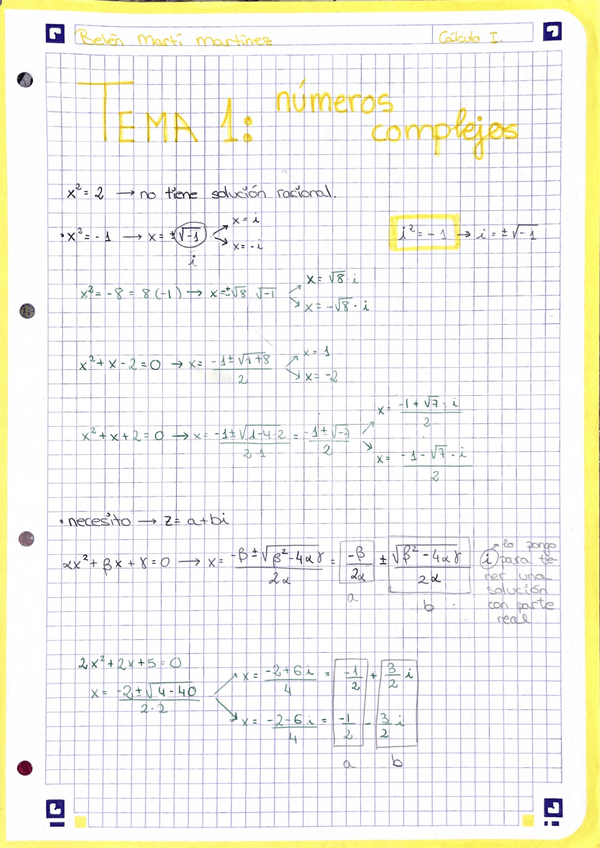 Belén Martí Martínez
Cálculo I.
TEMA 1: números complejos
x² = 2 → no tiene solución racional.
• x² = -1 → x = ±√-1 ↗ x = i ↘ x = -i
i
i² = -1 → i = ±√-1
x² = -8 = 8(-1) → x = ±√8 √-1 ↗ x = √8 · i ↘ x = -√8 · i
x² + x - 2 = 0 → x = (-1 ± √1+8)/2 ↗ x = 1 ↘ x = -2
x² + x + 2 = 0 → x = (-1 ± √1-4·2)/(2·1) = (-1 ± √-7)/2 ↗ x = (-1 + √7 · i)/2 ↘ x = (-1 - √7 · i)/2
• necesito → z = a + bi
αx² + βx + γ = 0 → x = (-β ± √β² - 4αγ)/(2α) = (-β)/(2α) ± (√β² - 4αγ)/(2α) i
a
b
→ lo pongo
para te
ner una
solución
con parte
real
2x² + 2x + 5 = 0
x = (-2 ± √4-40)/(2·2) ↗ x = (-2+6i)/4 = -1/2 + 3/2 i
↘ x = (-2-6i)/4 = -1/2 - 3/2 i
a
b